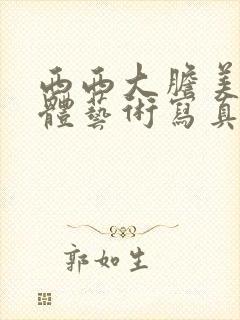 西西大膽美
體藝術寫真
郭如生